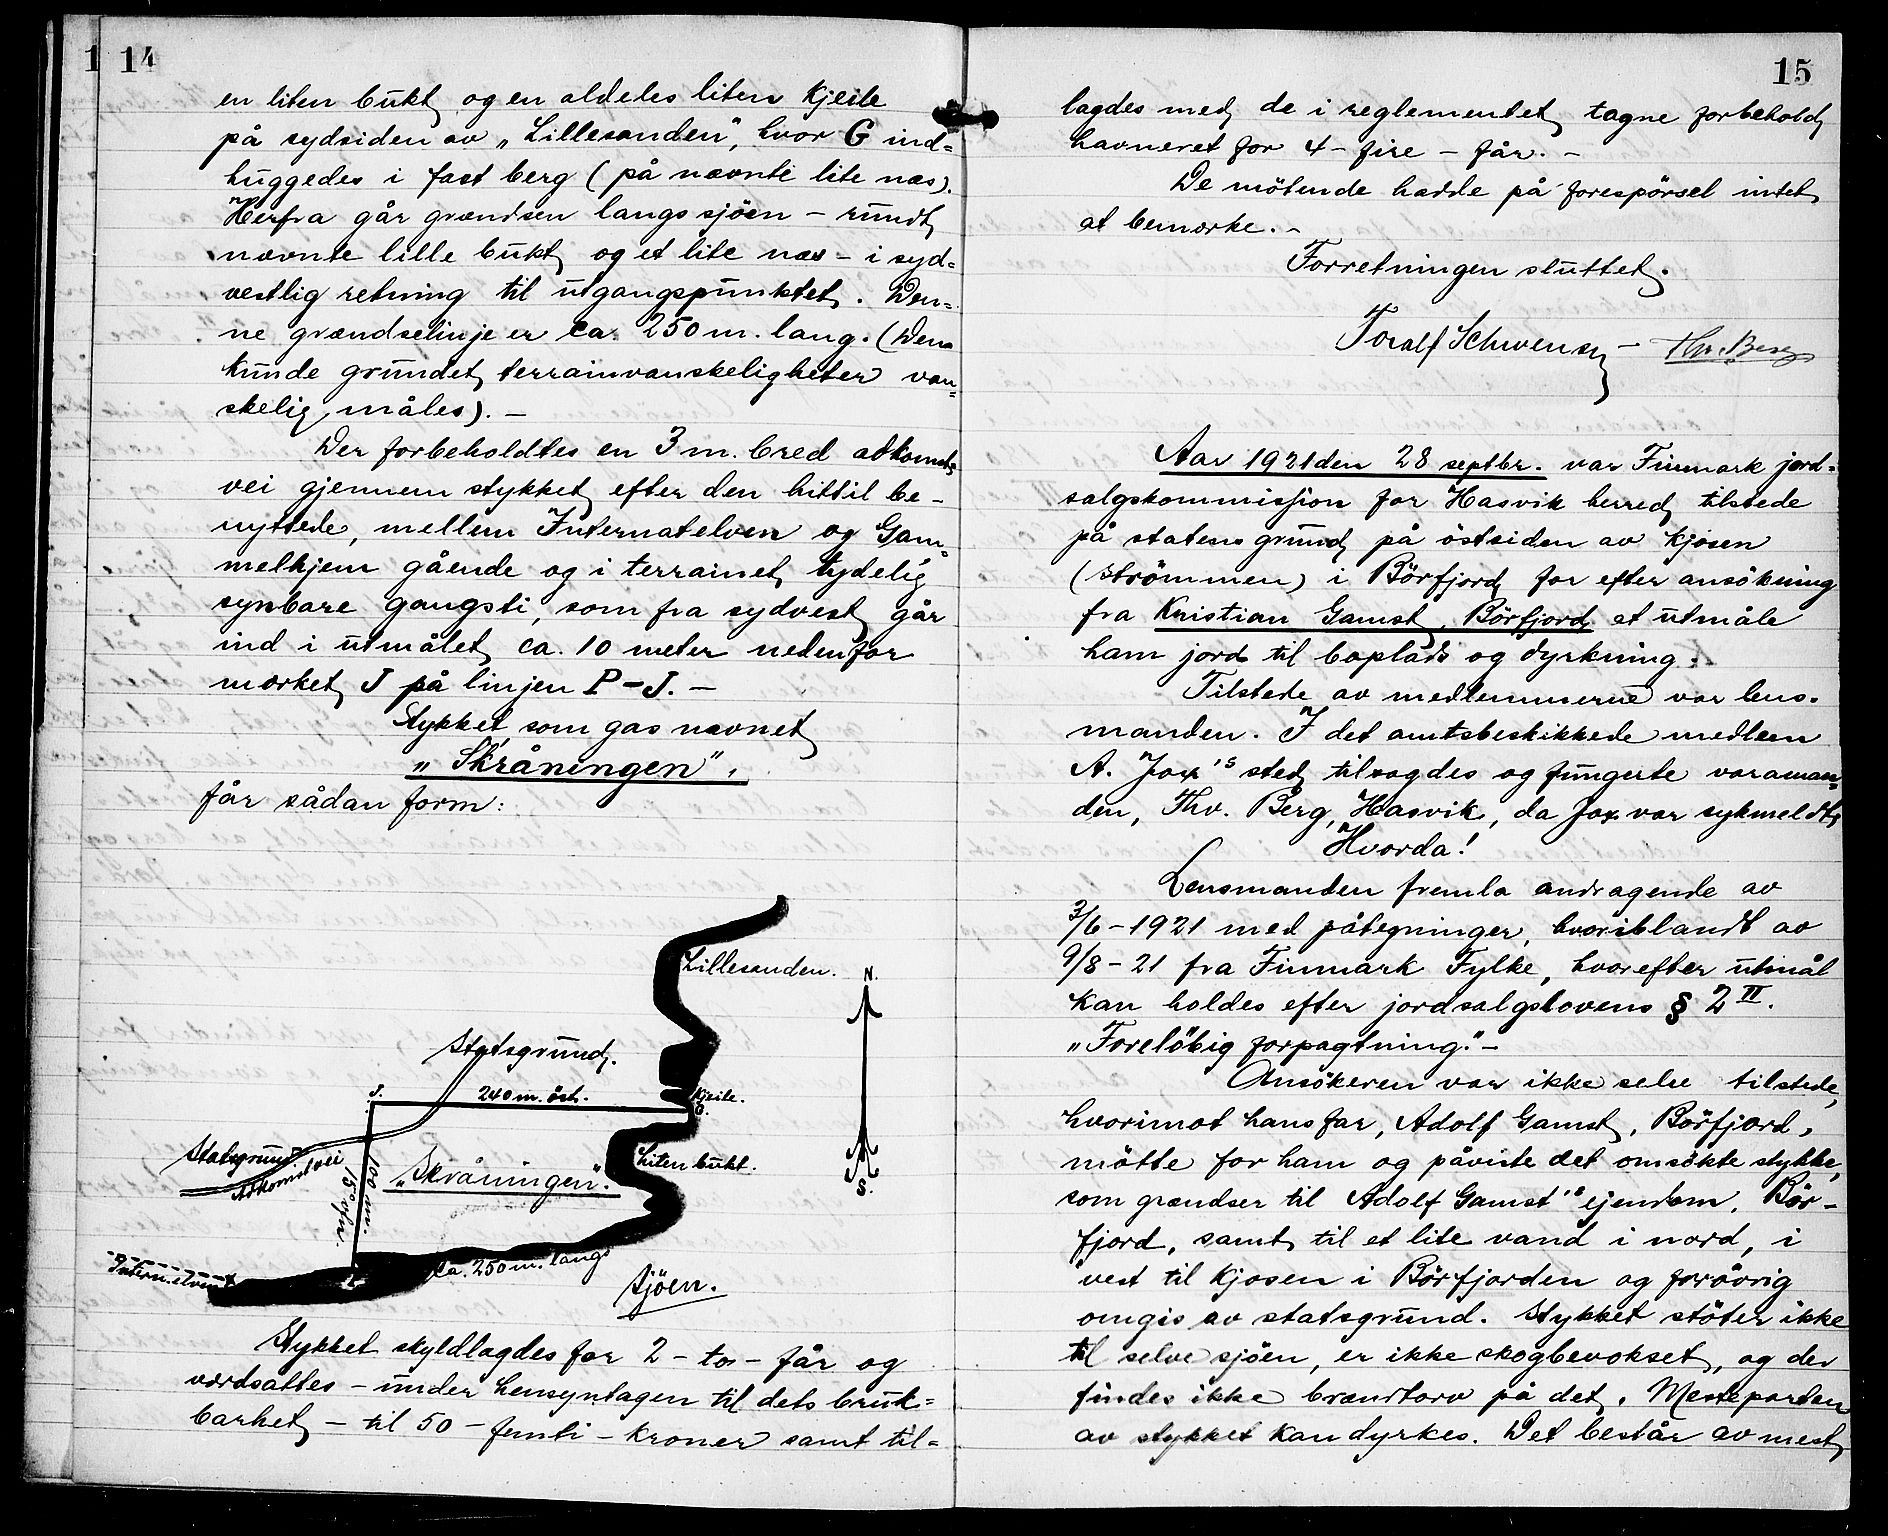 14
en liten bukt og en aldeles liten kjeile
på sydsiden av „Lillesanden“, hvor G ind=
huggedes i fast berg (på nævnte lite næs).
Herfra går grændsen langs sjöen – rundt
nævnte lille bukt og et lite næs – i syd=
vestlig retning til utgangspunktet. Den=
ne grændselinje er ca. 250 m. lang. (Den
kunde grundet terrainvanskeligheter van=
skelig måles). –
Der forbeholdtes en 3 m. bred atkomst=
vei gjennem stykket efter den hittil be-
nyttede, mellem Internatelven og Gam=
melhjem gående og i terrainet tydelig
synbare gangsti, som fra sydvest går
ind i utmålet ca. 10 meter nedenfor
mærket J på linjen P–J. –
Stykket som gas navnet
„Skråningen“,
får sådan form:
Lillesanden.
N.
Statsgrund.
J.
240 m. öst.
Kjeile.
G.
Statsgrund
Adkomstvei
100 m.
„Skråningen“.
Liten bukt.
S.
Intern.elven
ca. 250 m. langs
Sjöen.
Stykket skyldlagdes for 2 – to – får og
værdsattes – under hensyntagen til dets bruk=
barhet – til 50 – femti – kroner samt til=
15
lagdes med de i reglementet tagne forbehold
havneret for 4 – fire – får. –
De mötende hadde på forespörsel intet
at bemerke. –
Forretningen sluttet.
Toralf Schwensen – Thv. Berg
Aar 1921 den 28 septbr. var Finmark jord=
salgskommission for Hasvik herred tilstede
på statens grund på östsiden av Kjosen
(Strömmen) i Börfjord for efter ansökning
fra Kristian Gamst, Börfjord at utmåle
ham jord til boplads og dyrkning.
Tilstede av medlemmerne var lens-
manden. I det amtsbeskikkede medlem
A. Jox's sted tilsagdes og fungerte varaman=
den, Thv. Berg, Hasvik, da Jox var sykmeldt.
Hvorda!
Lensmanden fremla andragende av
3/6 – 1921 med påtegninger, hvoriblandt av
9/8 – 21 fra Finmark Fylke, hvorefter utmål
kan holdes efter jordsalgslovens § 2 II.
„Forelöbig forpagtning.“ –
Ansökeren var ikke selv tilstede,
hvorimot hans far, Adolf Gamst, Börfjord,
mötte for ham og påviste det omsökte stykke,
som grændser til Adolf Gamst's ejendom, Bör-
fjord, samt til et lite vand i nord, i
vest til Kjosen i Börfjorden og forövrig
omgis av statsgrund. Stykket stöter ikke
til selve sjöen, er ikke skogbevokset, og der
findes ikke brændtorv på det. Mesteparten
av stykket kan dyrkes. Det består av mest